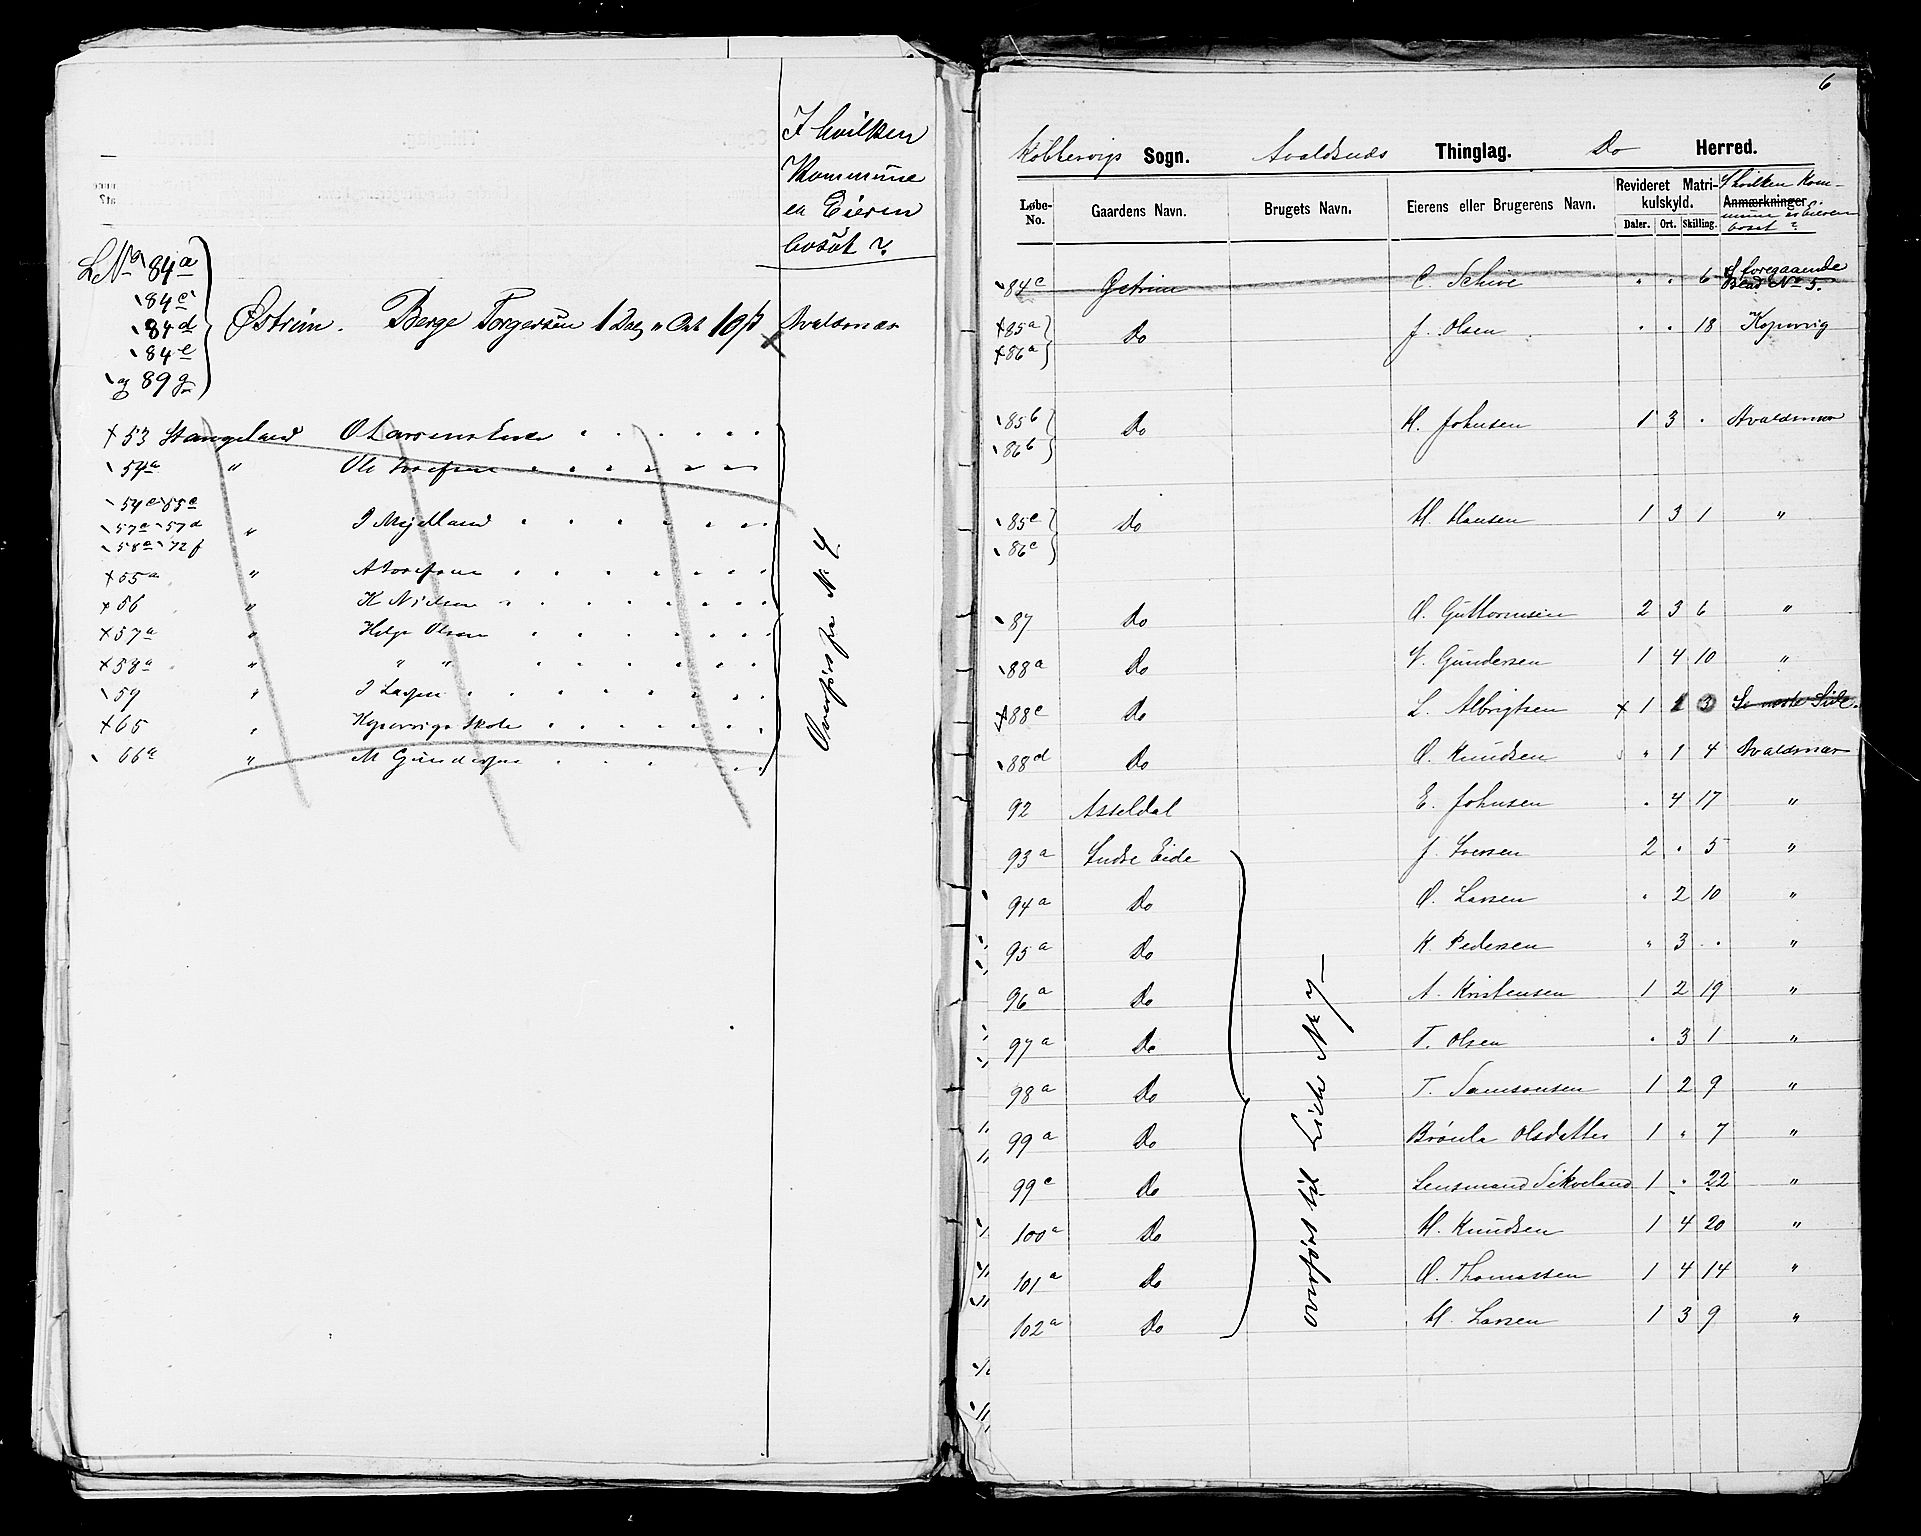 I hvilken
Kommune
er Eieren
bosat?
LNo 84a
84c
84d
84e
og 89g
Østrem. Berge Torgersen 1 Dal " Ort 10 ß Avaldsnæs
53 Stangeland O Larsens Enke
54a " Ole Josefsen
54c 55c
57c 57d " J Mejdland
58c 72f
55a " A Josefsen
56 " K Nielsen
57a " Helge Olsen
58a " " "
59 " J Larsen
65 " Kopervigs Skole
66a " M Gundersen
Overført fra No 4
6
Kobbervigs Sogn. Avaldsnæs Thinglag. Do Herred.
Løbe-No. Gaardens Navn. Brugets Navn. Eierens eller Brugerens Navn. Revideret Matrikulskyld. Daler. Ort. Skilling. Anmærkninger. I hvilken Kommune er Eieren bosat?
84c Østrem C. Schive " " 6 Se foregaaende Blad No 5.
85a
86a Do J. Olsen " " 18 Kopervig
85b
86b Do M. Johnsen 1 3 " Avaldsnæs
85c
86c Do M. Hansen 1 3 1 "
87 Do O. Guttormsen 2 3 6 "
88a Do V. Gundersen 1 4 10 "
88c Do L. Albrigtsen 1 1 3 Se næste Side.
88d Do O. Knudsen " 1 4 Avaldsnæs
92 Asseldal E. Johnsen " 4 17 "
93a Indre Eide J. Iversen 2 " 5 "
94a Do O. Larsen " 2 10 "
95a Do K. Pedersen " 3 " "
96a Do A. Kristensen 1 2 19 "
97a Do T. Olsen " 3 1 "
98a Do T. Samsonsen 1 2 9 "
99a Do Brønla Olsdatter 1 " 7 "
99c Do Lensmand Sikveland 1 " 22 "
100a Do M. Knudsen 1 4 20 "
101a Do O. Thomassen 1 4 14 "
102a Do M. Larsen 1 3 9 "
overført til Liste No 7